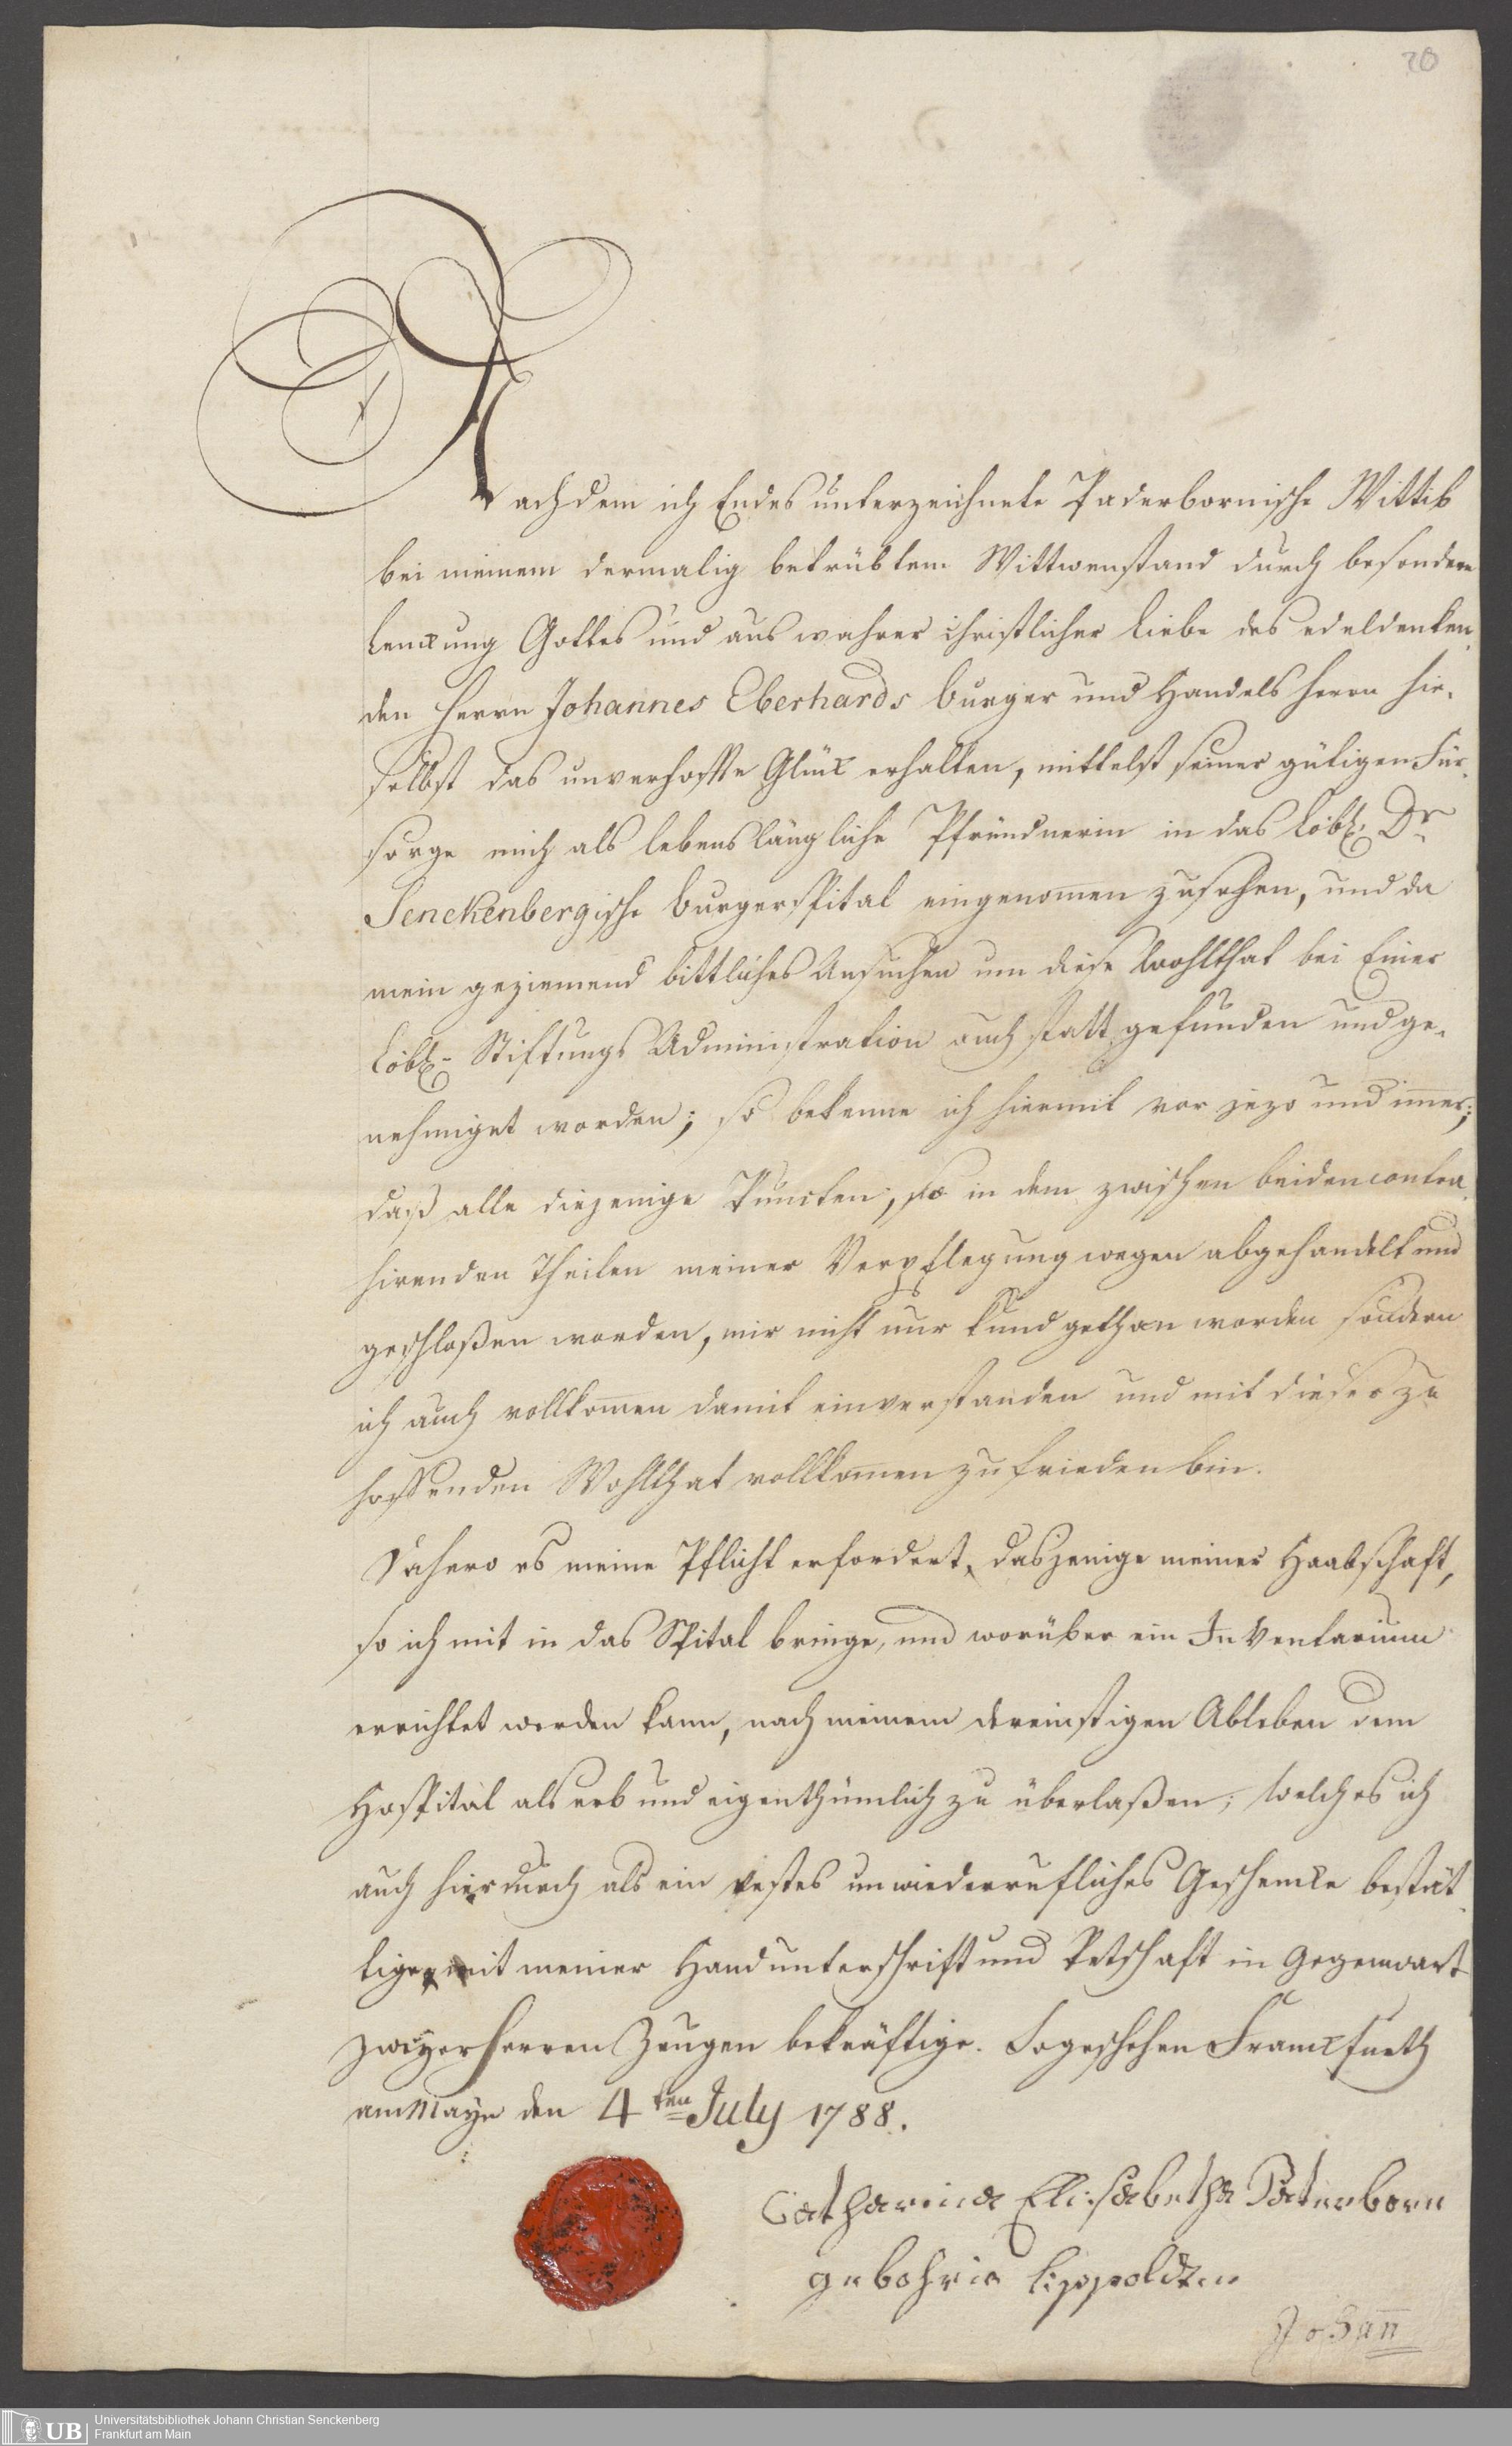 20
Nachdem ich Endes unterzeichnete Paderbornische Wittib
bei meinem dermalig betrübtem Wittwenstand durch besondere
Lenkung Gottes und aus wahrer christlicher Liebe des edeldenken-
den Herrn Johannes Eberhards burger und Handels Herrn hie-
selbst das unverhoffte Glück erhalten, mittelst seiner gütigen Für-
sorge mich als lebenslängliche Pfründnerin in das Löbl. Dr
Senckenbergische burgerspital eingenom̄en zusehen, und da
mein geziemend bittliches Ansuchen um diese Wohlthat bei Einer
Löbl- Stiftungs Administration auch statt gefunden und ge-
nehmiget worden; so bekenne ich hiermit vor jezo und im̄er;
daß alle diejenige Puncten, so in dem zwischen beiden contra-
hirenden Theilen meiner Verpflegung wegen abgehandelt und
geschloßen worden, mir nicht nur kund gethan worden sondern
ich auch vollkom̄en damit einverstanden und mit dieser zu
hoffenden Wohlthat vollkom̄en zufrieden bin.
Dahero es meine Pflicht erfordert, dasjenige meiner Haabschaft,
so ich mit in das Spital bringe, und worüber ein Inventarium
errichtet werden kann, nach meinem dereinstigen Ableben dem
Hospital als erb und eigenthümlich zu überlaßen, welches ich
auch hierdurch als ein vestes unwiederrufliches Geschencke bestät-
tige, mit meiner Handunterschrift und Petschaft in Gegenwart
zweyer Herren Zeugen bekräftige. So geschehen Franckfurth
am Mayn den 4ten July 1788.
Catharina Elisabetha Paterborn
gebohrie Lippoldten
Johan̄
UB
Universitätsbibliothek Johann Christian Senckenberg
Frankfurt am Main